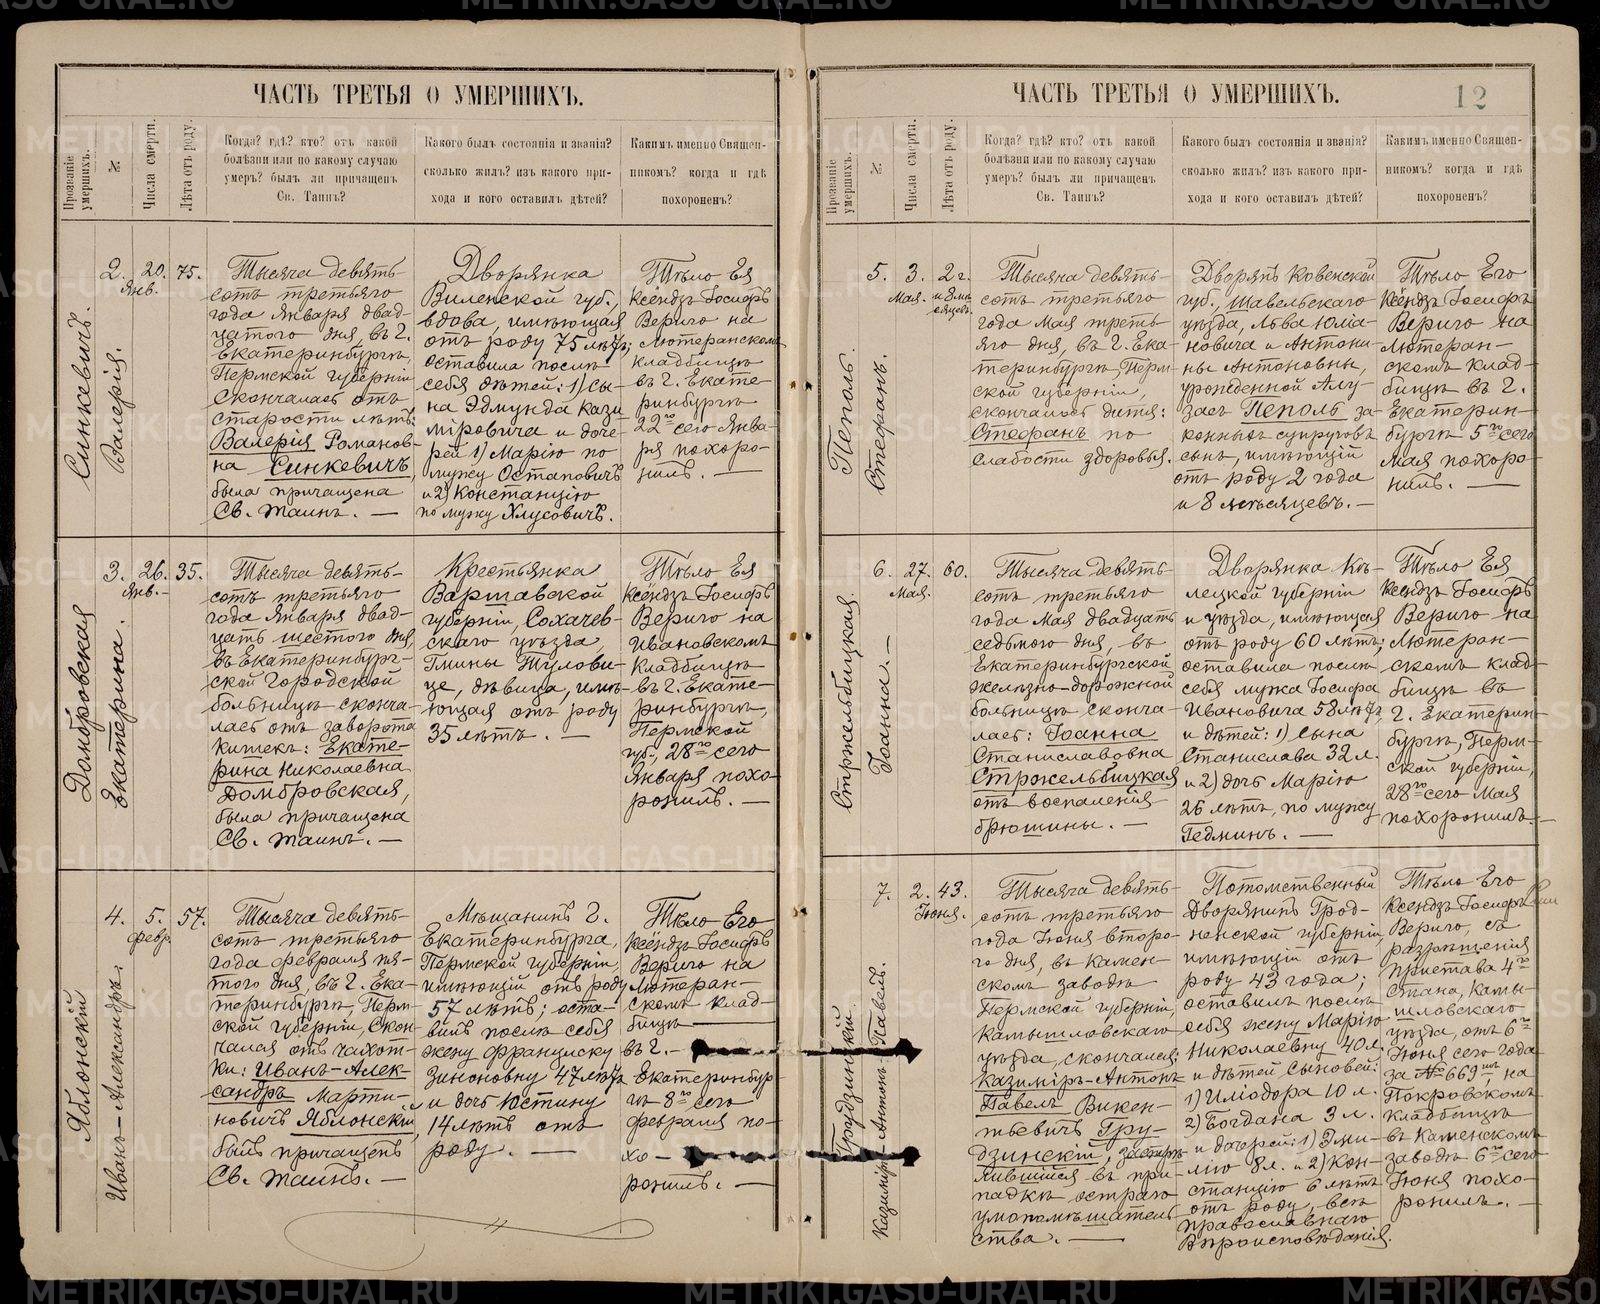 ЧАСТЬ ТРЕТЬЯ О УМЕРШИХЪ.
Прозваніе умершихъ.
№
Числа смерти.
Лѣта отъ роду.
Когда? гдѣ? кто? отъ какой
болѣзни или по какому случаю
умеръ? былъ ли причащенъ
Св. Таинъ?
Какого былъ состоянія и званія?
сколько жилъ? изъ какого при-
хода и кого оставилъ дѣтей?
Какимъ именно Священ-
никомъ? когда и гдѣ
похороненъ?
Синкевичъ.
Валерія.
2.
20.
Янв.
75.
Тысяча девять-
сотъ третьяго
года Января двад-
цатого дня, въ г.
Екатеринбургѣ,
Пермской губерніи
скончалась отъ
старости лѣтъ:
Валерія Романов-
на Синкевичъ,
была причащена
Св. Таинъ. —
Дворянка
Виленской губ.,
вдова, имѣющая
отъ роду 75 лѣтъ;
оставила послѣ
себя дѣтей: 1) сы-
на Эдмунда Кази
міровича и доче-
рей 1) Марію по
мужу Остаповичъ
и 2) Констанцію
по мужу Хлусовичъ.
Тѣло Ея
Ксендзъ Іосифъ
Вериго на
Лютеранскомъ
кладбищѣ
въ г. Екате-
ринбургѣ
22го сего Янва-
ря похоро-
нилъ. —
Домбровская
Екатерина.
3.
26.
Янв.-
35.
Тысяча девять-
сотъ третьяго
года Января двад-
цать шестого дня,
въ Екатеринбург-
ской Городской
больницѣ сконча-
лась отъ заворота
кишекъ: Екате-
рина Николаевна
Домбровская,
была причащена
Св. Таинъ. —
Крестьянка
Варшавской
губерніи, Сохачев-
скаго уѣзда,
Гмины Тулови-
це, дѣвица, имѣ-
ющая отъ роду
35 лѣтъ. —
Тѣло Ея
Ксендзъ Іосифъ
Вериго на
Ивановскомъ
кладбищѣ
въ г. Екате-
ринбургѣ,
Пермской
губ., 28го сего
Января похо-
ронилъ. —
Яблонскій
Иванъ-Александръ.
4.
5.
Февр.
57.
Тысяча девять-
сотъ третьяго
года Февраля пя-
того дня, въ г. Ека-
теринбургѣ, Перм-
ской губерніи, скон-
чался отъ чахот-
ки: Иванъ-Алек-
сандръ Марти-
новичъ Яблонскій,
былъ причащенъ
Св. Таинъ. —
Мѣщанинъ г.
Екатеринбурга,
Пермской губерніи,
имѣющій отъ роду
57 лѣтъ; оста-
вилъ послѣ себя
жену Францишку
Зиноновну 47 лѣтъ
и дочь Юстину
14 лѣтъ отъ
роду. —
Тѣло Его
Ксендзъ Іосифъ
Вериго на
Лютеран-
скомъ клад-
бищѣ —
въ г. —
Екатеринбур-
гѣ 8го сего
Февраля по-
хо-
ронилъ. —
ЧАСТЬ ТРЕТЬЯ О УМЕРШИХЪ.
12
Прозваніе умершихъ.
№
Числа смерти.
Лѣта отъ роду.
Когда? гдѣ? кто? отъ какой
болѣзни или по какому случаю
умеръ? былъ ли причащенъ
Св. Таинъ?
Какого былъ состоянія и званія?
сколько жилъ? изъ какого при-
хода и кого оставилъ дѣтей?
Какимъ именно Священ-
никомъ? когда и гдѣ
похороненъ?
Пеполь.
Стефанъ.
5.
3.
Мая.
2 г.
и 8 мѣ
сяцевъ.
Тысяча девять-
сотъ третьяго
года Мая треть-
яго дня, въ г. Ека-
теринбургѣ, Перм-
ской губерніи,
скончалось дитя:
Стефанъ по
слабости здоровья.
Дворянъ Ковенской
губ., Шавельскаго
уѣзда, Льва Юліа-
новича и Антони-
ны Антоновны,
урожденной Алу-
засъ Пеполь за-
конныхъ супруговъ
сынъ, имѣющій
отъ роду 2 года
и 8 мѣсяцевъ. —
Тѣло Его
Ксендзъ Іосифъ
Вериго на
Лютеран-
скомъ клад-
бищѣ въ г.
Екатерин-
бургѣ 5го сего
Мая похоро-
нилъ. —
Стржельбицкая.
Іоанна. —
6.
27.
Мая.
60.
Тысяча девять-
сотъ третьяго
года Мая двадцать
седьмого дня, въ
Екатеринбургской
желѣзно-дорожной
больницѣ сконча-
лась: Іоанна
Станиславовна
Стржельбицкая
отъ воспаленія
брюшины. —
Дворянка Кѣ-
лецкой губерніи
и уѣзда, имѣющая
отъ роду 60 лѣтъ;
оставила послѣ
себя мужа Іосифа
Ивановича 58 лѣтъ
и дѣтей: 1) сына
Станислава 32 л.
и 2) дочь Марію
26 лѣтъ, по мужу
Гедминъ. —
Тѣло Ея
Ксендзъ Іосифъ
Вериго на
Лютеран-
скомъ клад-
бищѣ въ
г. Екатерин-
бургѣ, Перм-
ской губерніи,
28го сего Мая
похоронилъ. —
Грудзинскій.
Казиміръ-Антонъ-Павелъ.
7.
2.
Іюня.
43.
Тысяча девять-
сотъ третьяго
года Іюня второ-
го дня, въ Камен-
скомъ заводѣ
Пермской губерніи,
Камышловскаго
уѣзда, скончался:
Казиміръ-Антонъ
Павелъ Викен-
тьевичъ Гру-
дзинскій, застрѣ-
лившійся въ при-
падкѣ остраго
умопомѣшатель-
ства. —
Потомственный
Дворянинъ Грод-
ненской губерніи,
имѣющій отъ
роду 43 года;
оставилъ послѣ
себя жену Марію
Николаевну 40 л.
и дѣтей сыновей:
1) Иліодора 10 л.
2) Богдана 3 л.
и дочерей: 1) Эми-
лію 8 л. и 2) Кон-
станцію 6 лѣтъ
отъ роду, всѣ
православнаго
Вѣроисповѣданія.
Тѣло Его
Ксендзъ Іосифъ
Вериго, съ
разрѣшенія
пристава 4го
стана, Камы-
шловскаго
уѣзда, отъ 6го
Іюня сего года
за № 669мъ, на
Покровскомъ
кладбищѣ
въ Каменскомъ
заводѣ 6го сего
Іюня похо-
ронилъ. —
METRIKI.GASO-URAL.RU